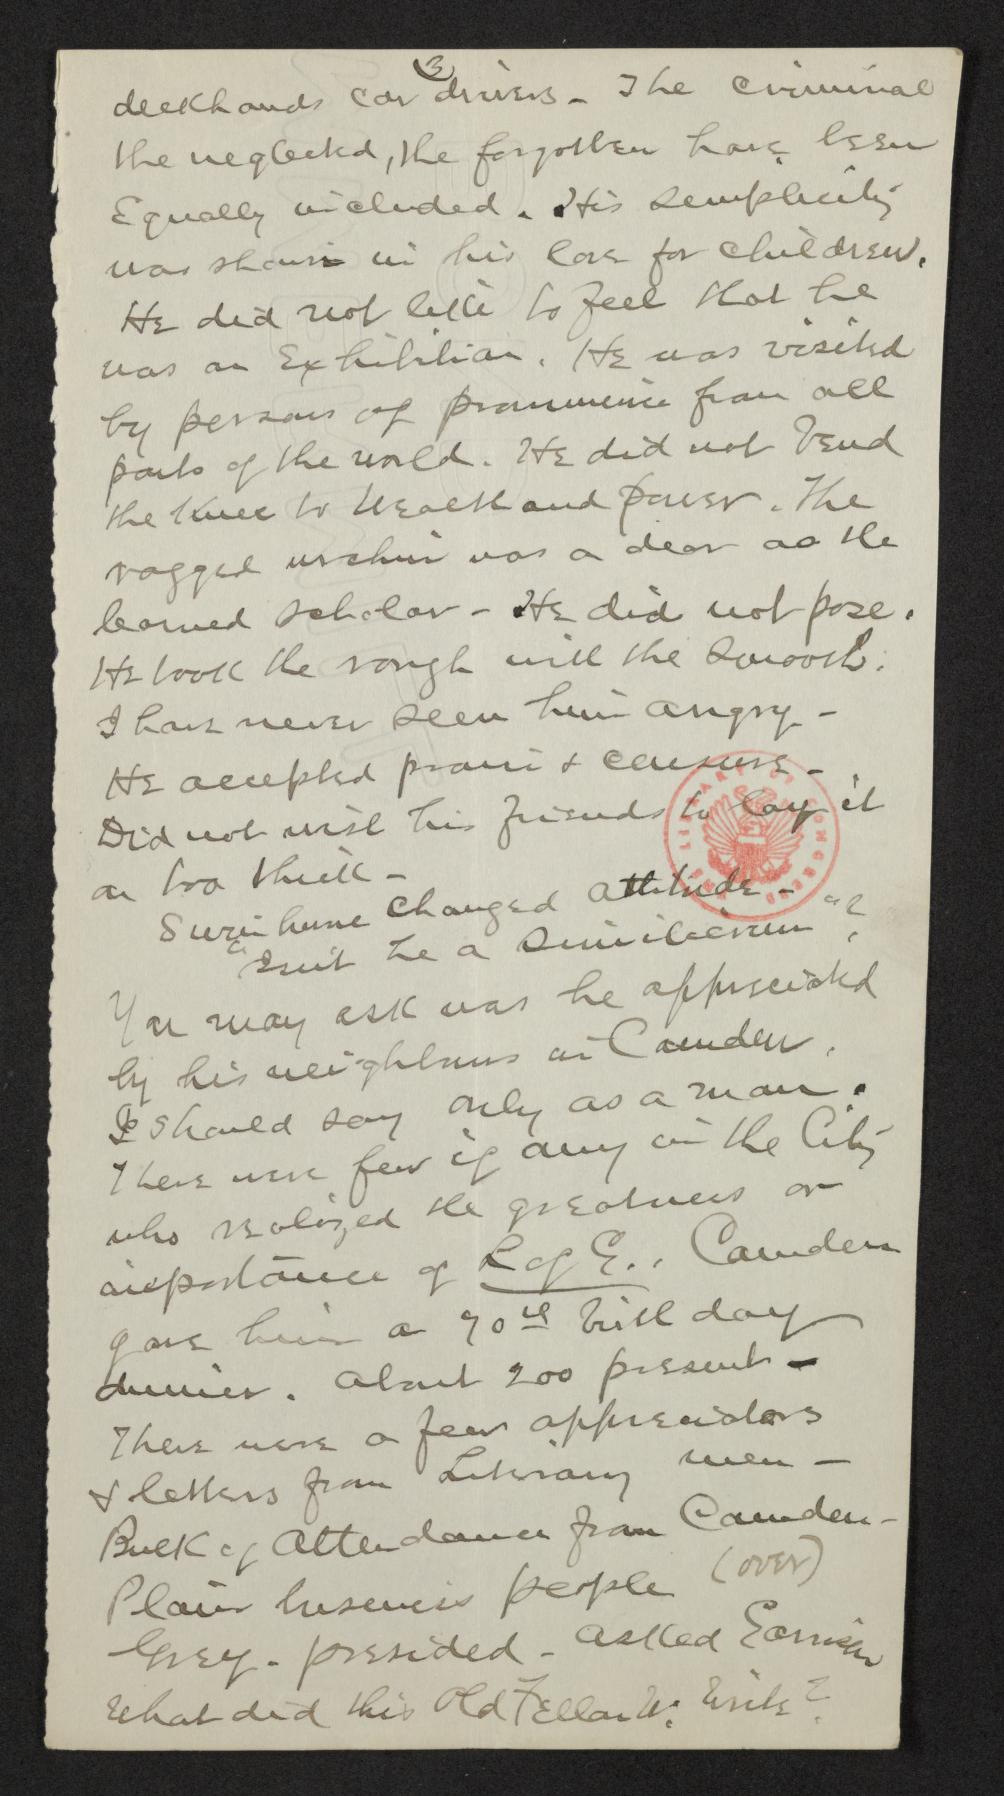 (3)
deckhands car drivers - The criminal
the neglected, the forgotten have been
Equally included. His simplicity
was shown in his love for children.
He did not like to feel that he
was an Exhibition. He was visited
by persons of prominence from all
parts of the world. He did not bend
the knee to wealth and power. The
ragged urchin was a dear as the
learned scholar - He did not pose.
He took the rough with the smooth.
I have never seen him angry -
He accepted praise & censure -
Did not wish his friends to lay it
on too thick -
Swinburne changed attitude -
"Isn't he a simulacrum"?
You may ask was he appreciated
by his neighbours in Camden.
I should say only as a man.
There were few if any in the City
who realized the greatness or
importance of L of G.. Camden
gave him a 70th birthday
dinner. About 200 present -
There were a few appreciators
& letters from Literary men -
Bulk of attendance from Camden -
Plain business people (over)
Grey - presided - asked Garrison
What did this Old Fellow W. write?
LIBRARY OF CONGRESS